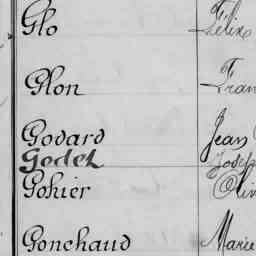 Glo Félix
Glon Fran
Godard Jean
Godet Josep
Gohier Oliv
Gonchaud Marie